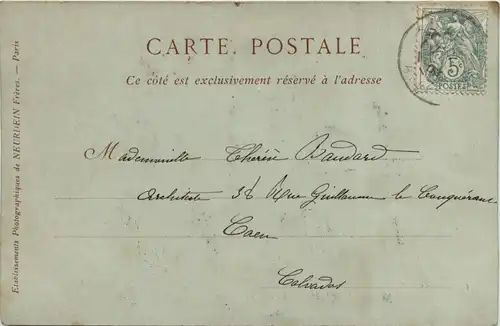 CARTE POSTALE
Ce côté est exclusivement réservé à l'adresse
5c
POSTES
Mademoiselle Thérèse Baudard
Architecte 36 Rue Guillaume le Conquérant
Caen
Calvados
Etablissements Photographiques de NEURDEIN Frères. — Paris